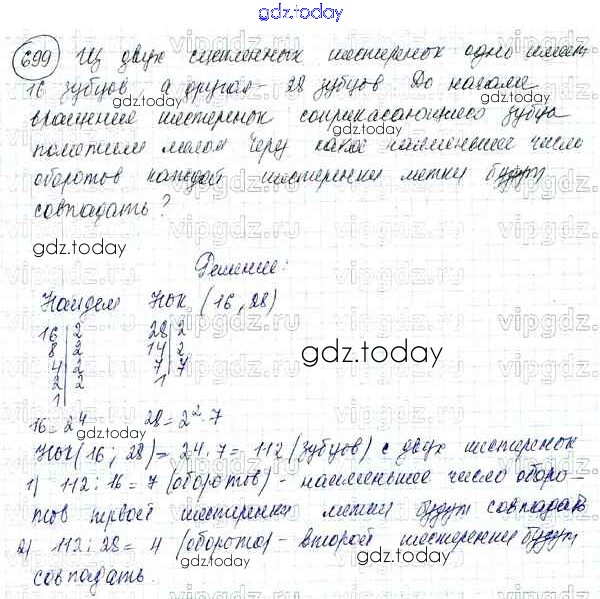 gdz.today
699 Из двух сцепленных шестеренок одна имеет
16 зубцов, а другая - 28 зубцов До начала
вращения шестеренок соприкасающиеся зубца
пометили мелом Через какое наименьшее число
оборотов каждой шестеренки метки будут
совпадать?
Решение:
Найдем НОК (16, 28)
16 | 2 28 | 2
8 | 2 14 | 2
4 | 2 7 | 7
2 | 2 1
1
16 = 2⁴ 28 = 2² · 7
НОК (16; 28) = 24 · 7 = 112 (зубцов) с двух шестеренок
1) 112 : 16 = 7 (оборотов) - наименьшее число оборо-
тов первой шестеренки метки будут совпадать
2) 112 : 28 = 4 (оборота) - второй шестеренки будут
совпадать.
gdz.today
gdz.today
gdz.today
gdz.today
gdz.today
gdz.today
gdz.today